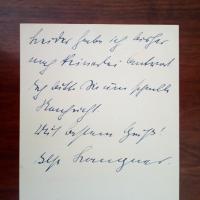 Leider habe ich bisher
noch keinerlei Antwort
Ich bitte Sie um schnelle
Nachricht
Mit bestem Gruß!
Ilse Langner.